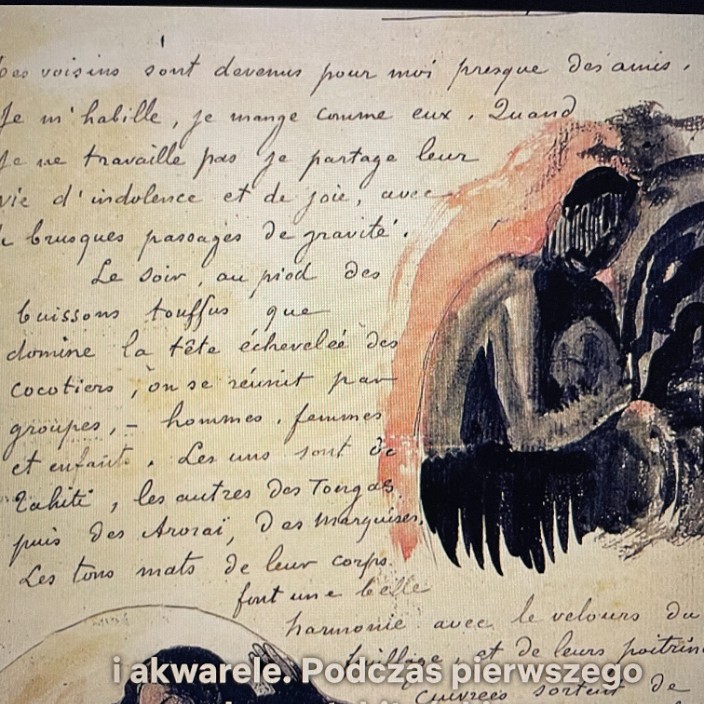 Les voisins sont devenus pour moi presque des amis.
Je m'habille, je mange comme eux. Quand
Je ne travaille pas je partage leur
vie d'indolence et de joie, avec
de brusques passages de gravité.
Le soir, au pied des
buissons touffus que
domine la tête échevelée des
cocotiers, on se réunit par
groupes, - hommes, femmes
et enfants. Les uns sont de
Tahiti, les autres des Tongas,
puis des Arorai, des Marquises.
Les tons mats de leur corps
font une belle
harmonie avec le velours du
feuillage, et de leurs poitrin
cuivrées sortent de
i akwarele. Podczas pierwszego